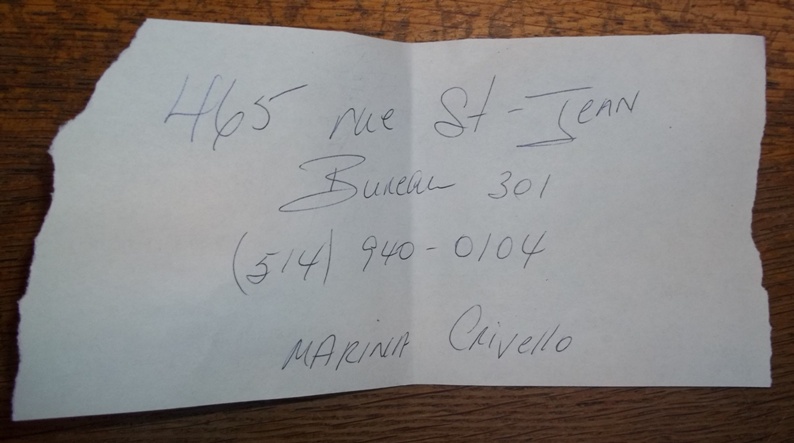 465 rue St-Jean
Bureau 301
(514) 940-0104
Marina Crivello